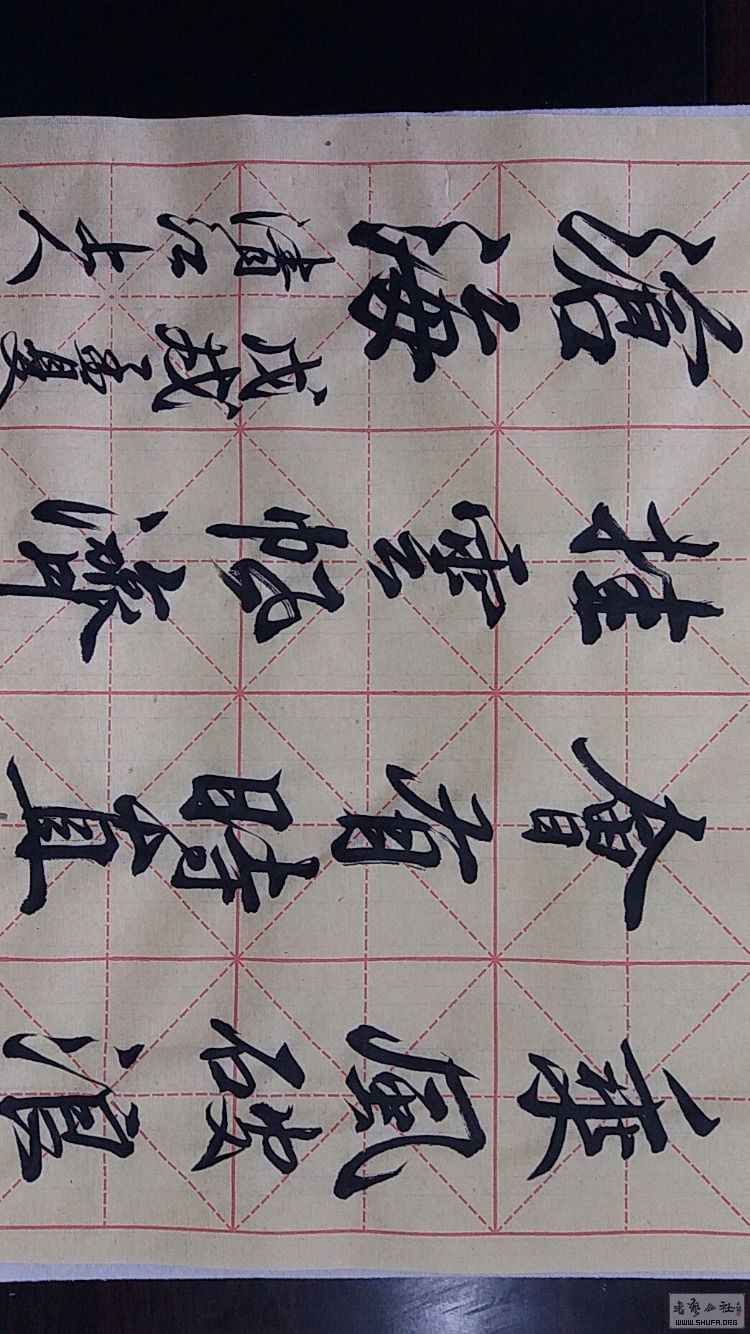 乘風破浪
會有時直
挂雲帆濟
滄海
戊戌孟夏
清江士人
书艺公社
WWW.SHUFA.ORG